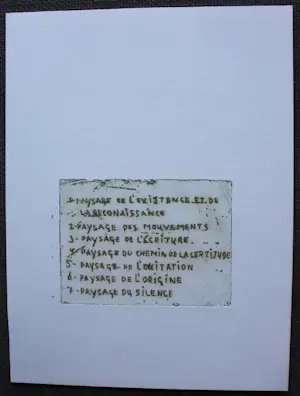 1-PAYSAGE DE L'EXISTENCE ET DE
LA RECONAISSANCE
2-PAYSAGE DES MOUVEMENTS
3-PAYSAGE DE L'ECRITURE
4-PAYSAGE DU CHEMIN DE LA CERTITUDE
5-PAYSAGE DE L'EXITATION
6-PAYSAGE DE L'ORIGINE
7-PAYSAGE DU SILENCE